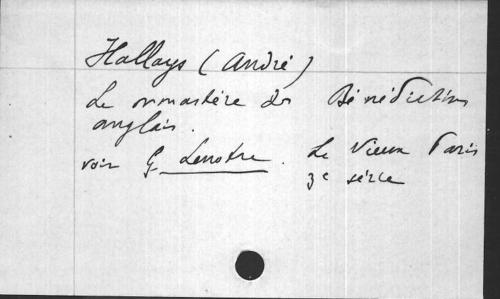 Hallays (André)
Le monastère des Bénédictins
anglais.
voir G. Lenotre. Le Vieux Paris
3e série